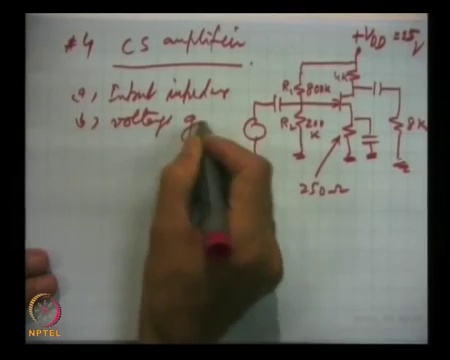 #4 CS amplifier
a, Input impedance
b, voltage g
+VDD = 25V
4K
R1 800K
R2 200K
8K
250Ω
NPTEL